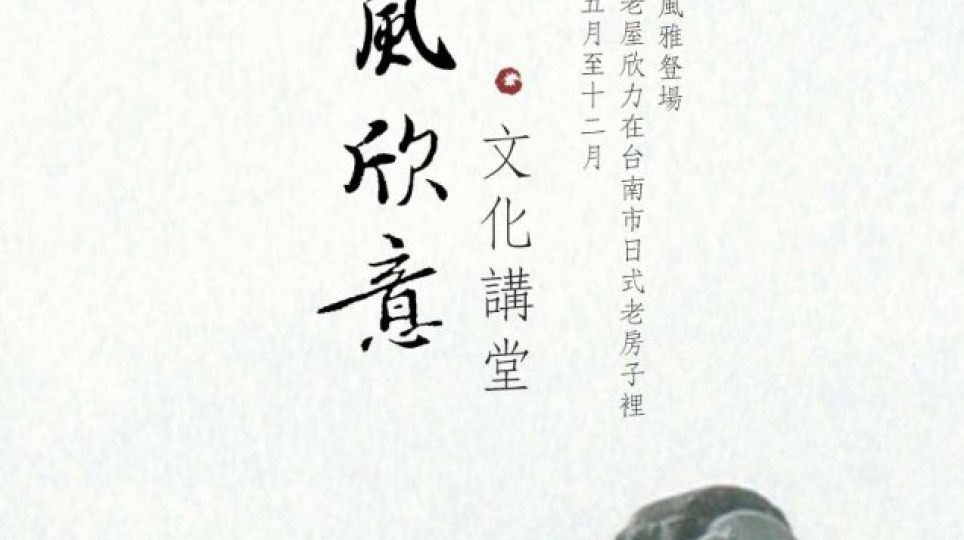 風雅豋場
老屋欣力在台南市日式老房子裡
五月至十二月
文化講堂
風欣意